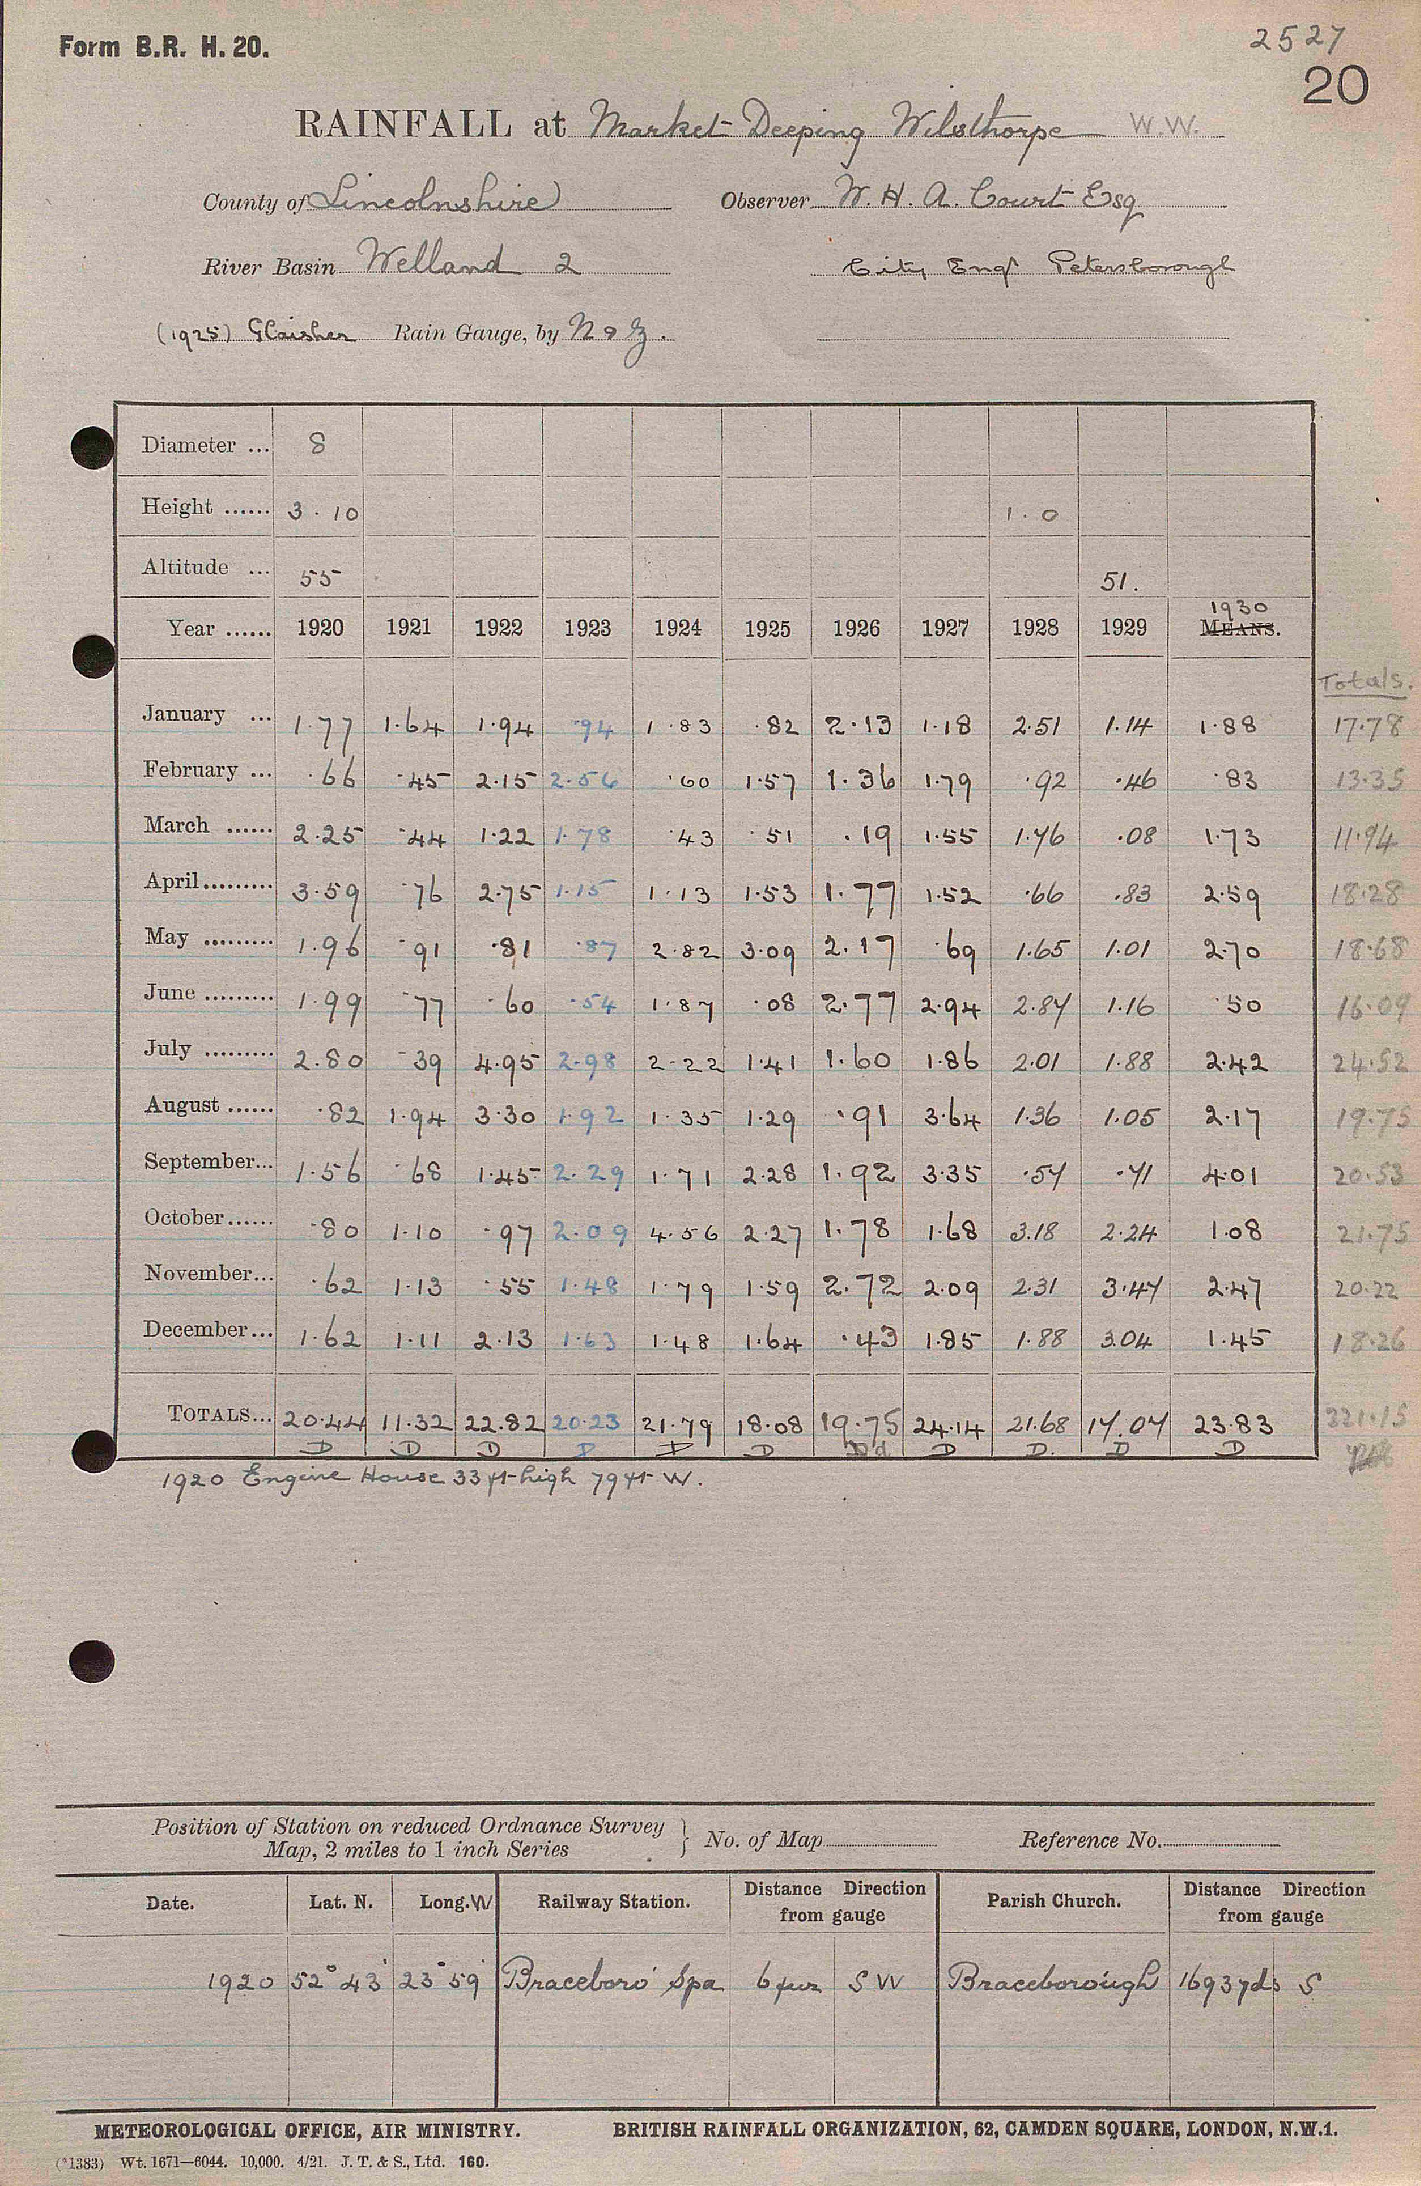 Form B.R. H. 20.
2527
20
RAINFALL at Market Deeping Wilsthorpe W.W.
County of Lincolnshire Observer W. H. A. Court Esq
River Basin Welland 2 City Engr Peterborough
(1925) Glaisher Rain Gauge, by N & Z.
Diameter ... 8
Height ...... 3 . 10 1 . 0
Altitude ... 55 51.
1930
Year ...... 1920 1921 1922 1923 1924 1925 1926 1927 1928 1929 MEANS.
Totals.
January ... 1.77 1.64 1.94 .94 1.83 .82 2.13 1.18 2.51 1.14 1.88 17.78
February ... .66 .45 2.15 2.56 .60 1.57 1.36 1.79 .92 .46 .83 13.35
March ...... 2.25 .44 1.22 1.78 .43 .51 .19 1.55 1.76 .08 1.73 11.94
April ......... 3.59 .76 2.75 1.15 1.13 1.53 1.77 1.52 .66 .83 2.59 18.28
May ......... 1.96 .91 .81 .87 2.82 3.09 2.17 .69 1.65 1.01 2.70 18.68
June ......... 1.99 .77 .60 .54 1.87 .08 2.77 2.94 2.87 1.16 .50 16.09
July ......... 2.80 .39 4.95 2.98 2.22 1.41 1.60 1.86 2.01 1.88 2.42 24.52
August ...... .82 1.94 3.30 1.92 1.35 1.29 .91 3.64 1.36 1.05 2.17 19.75
September... 1.56 .68 1.45 2.29 1.71 2.28 1.92 3.35 .57 .71 4.01 20.53
October...... .80 1.10 .97 2.09 4.56 2.27 1.78 1.68 3.18 2.24 1.08 21.75
November... .62 1.13 .55 1.48 1.79 1.59 2.72 2.09 2.31 3.47 2.47 20.22
December... 1.62 1.11 2.13 1.63 1.48 1.64 .43 1.85 1.88 3.04 1.45 18.26
TOTALS... 20.44 11.32 22.82 20.23 21.79 18.08 19.75 24.14 21.68 17.07 23.83 221.15
D D D D D D Dd D D. D D
1920 Engine House 33 ft high 79 ft W.
Position of Station on reduced Ordnance Survey
Map, 2 miles to 1 inch Series } No. of Map Reference No.
Date. Lat. N. Long. W Railway Station. Distance Direction from gauge Parish Church. Distance Direction from gauge
1920 52° 43' 23° 59' Braceboro' Spa 6 fur S W Braceborough 1693 yds S
METEOROLOGICAL OFFICE, AIR MINISTRY. BRITISH RAINFALL ORGANIZATION, 62, CAMDEN SQUARE, LONDON, N.W.1.
(*1383) Wt. 1671—6044. 10,000. 4/21. J. T. & S., Ltd. 160.